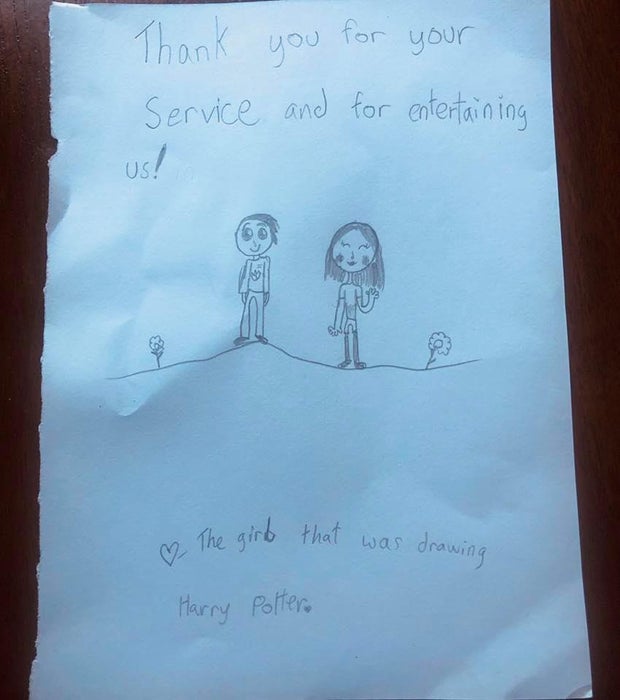 Thank you for your
Service and for entertaining
us!
The girl that was drawing
Harry Potter.